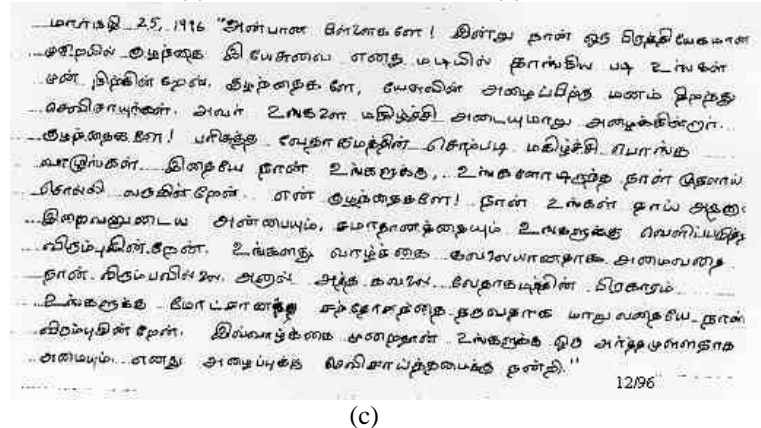 மார்கழி 25, 1996 "அன்பான பிள்ளைகளே! இன்று நான் ஒரு பிரத்தியேகமான
முறையில் குழந்தை இயேசுவை எனது மடியில் தாங்கிய படி உங்கள்
முன் நிற்கின்றேன். குழந்தைகளே, யேசுவின் அழைப்பிற்கு மனம் திறந்து
செவிசாயுங்கள். அவர் உங்களை மகிழ்ச்சி அடையுமாறு அழைக்கின்றார்.
குழந்தைகளே! பரிசுத்த வேதாகமத்தின் சொற்படி மகிழ்ச்சி பொங்க
வாழுங்கள். இதையே நான் உங்களுக்கு, உங்களோடிருந்த நாள் முதலாய்
சொல்லி வருகின்றேன். என் குழந்தைகளே! நான் உங்கள் தாய்
இறைவனுடைய அன்பையும், சமாதானத்தையும் உங்களுக்கு
விரும்புகின்றேன். உங்களது வாழ்க்கை கவலையானதாக அமைவதை
நான் விரும்பவில்லை. அனால் அந்த கவலை பிரகாரம்
உங்களுக்கு சந்தோசத்தை தருவதாக மாறுவதையே நான்
விரும்புகின்றேன். இவ்வாழ்க்கை முறைதான் உங்களுக்கு ஒரு அர்த்தமுள்ளதாக
அமையும். எனது அழைப்புக்கு செவிசாய்த்தமைக்கு நன்றி."
12/96
(c)